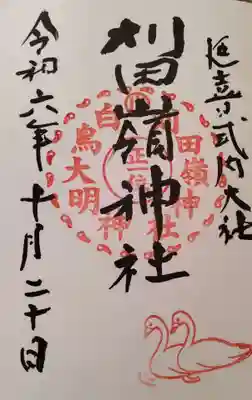 延喜式内大社
刈田嶺神社
令和六年十月二十日
刈田嶺神社
正一位
白鳥大明神